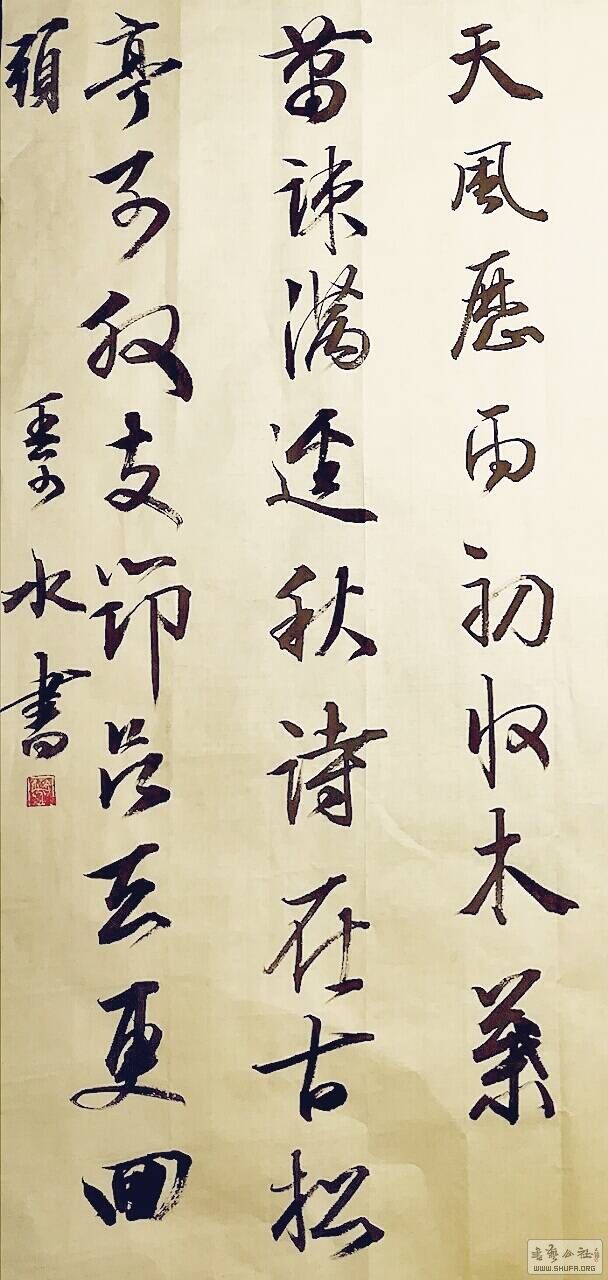 天風歷雨初收木葉
蕭疎滿逕秋詩在古松
亭子外支筇吟去更囬
頭
水書
书艺公社
WWW.SHUFA.ORG